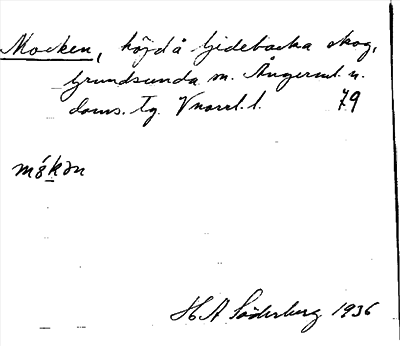 Mocken, höjd å Gidebacka skog,
Grundsunda sn. Ångerml. n.
doms. tg. Vnorrl. l. 79
mókən
H A Söderberg 1936